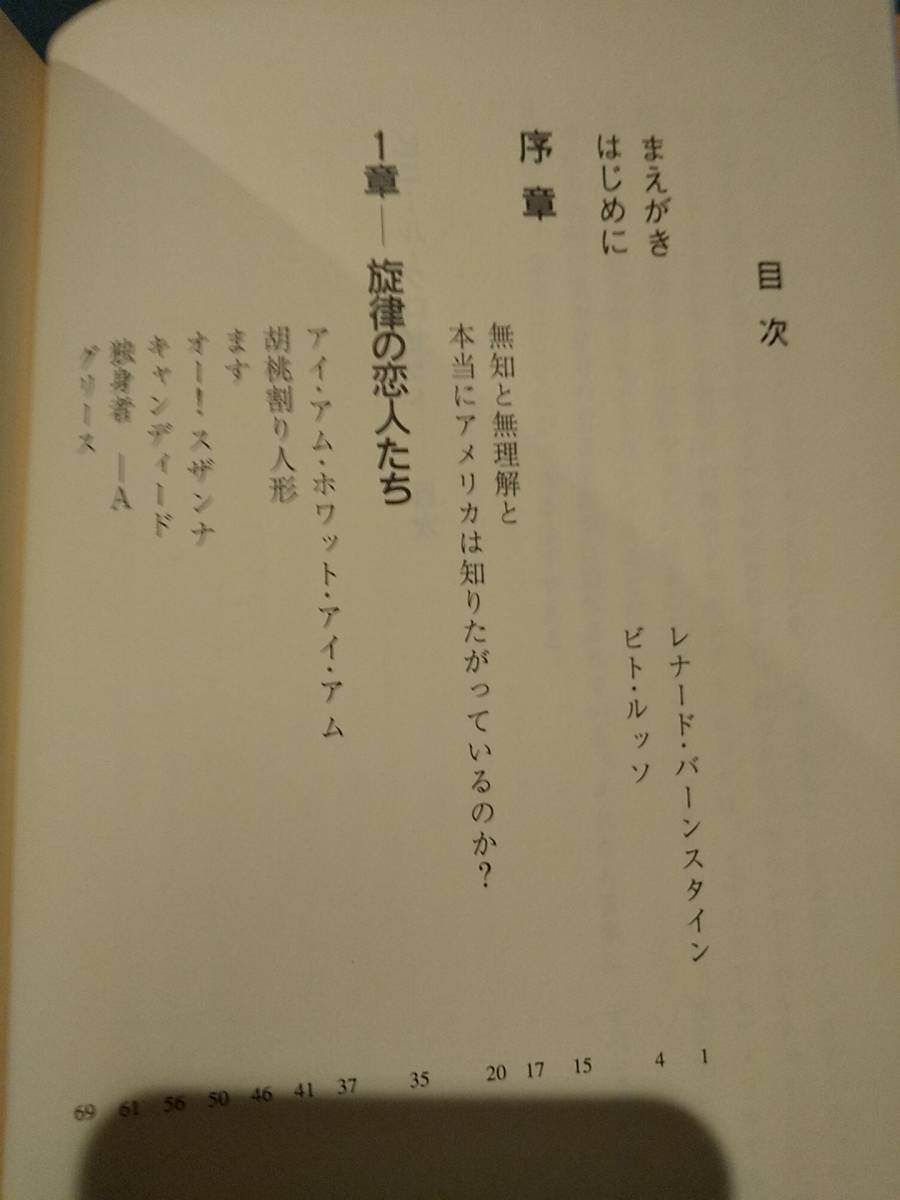 目次
まえがき レナード・バーンスタイン 1
はじめに ビト・ルッソ 4
序章 15
無知と無理解と 17
本当にアメリカは知りたがっているのか? 20
1章—旋律の恋人たち 35
アイ・アム・ホワット・アイ・アム 37
胡桃割り人形 41
ます 46
オー!スザンナ 50
キャンディード 56
独身者 —A 61
グリース 69